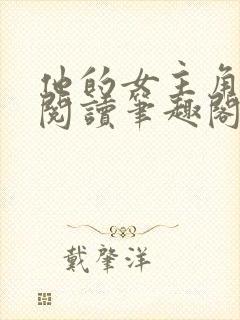 他的女主角
閱讀筆趣閣
戴肇洋